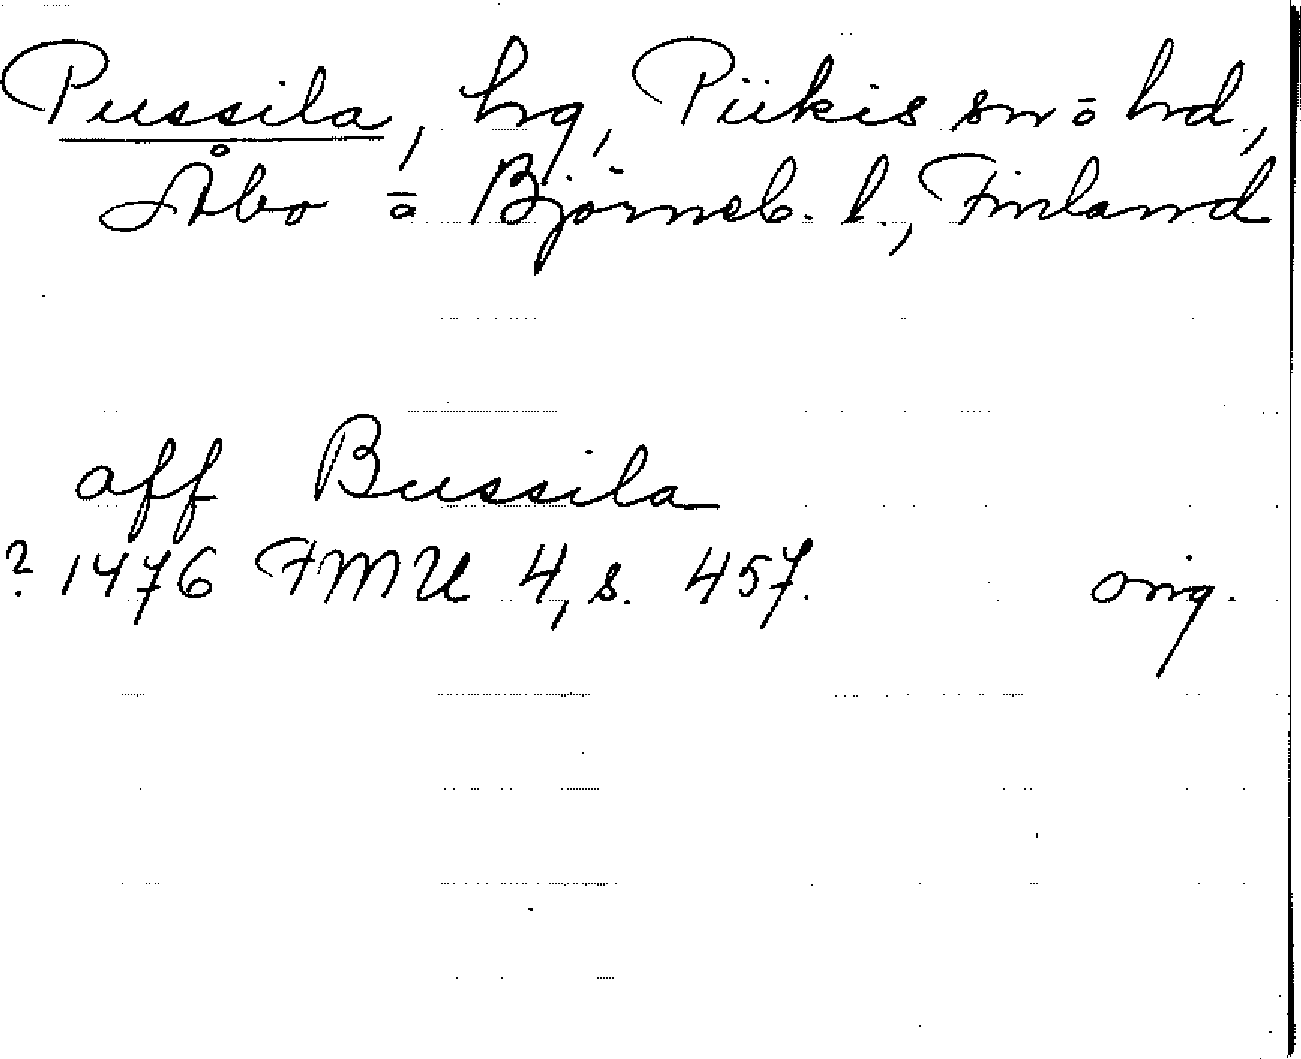 Pussila, hg, Piikis sn o hd.,
Åbo o Björneb. l., Finland
aff Bussila
? 1476 FMU 4, s. 457. orig.